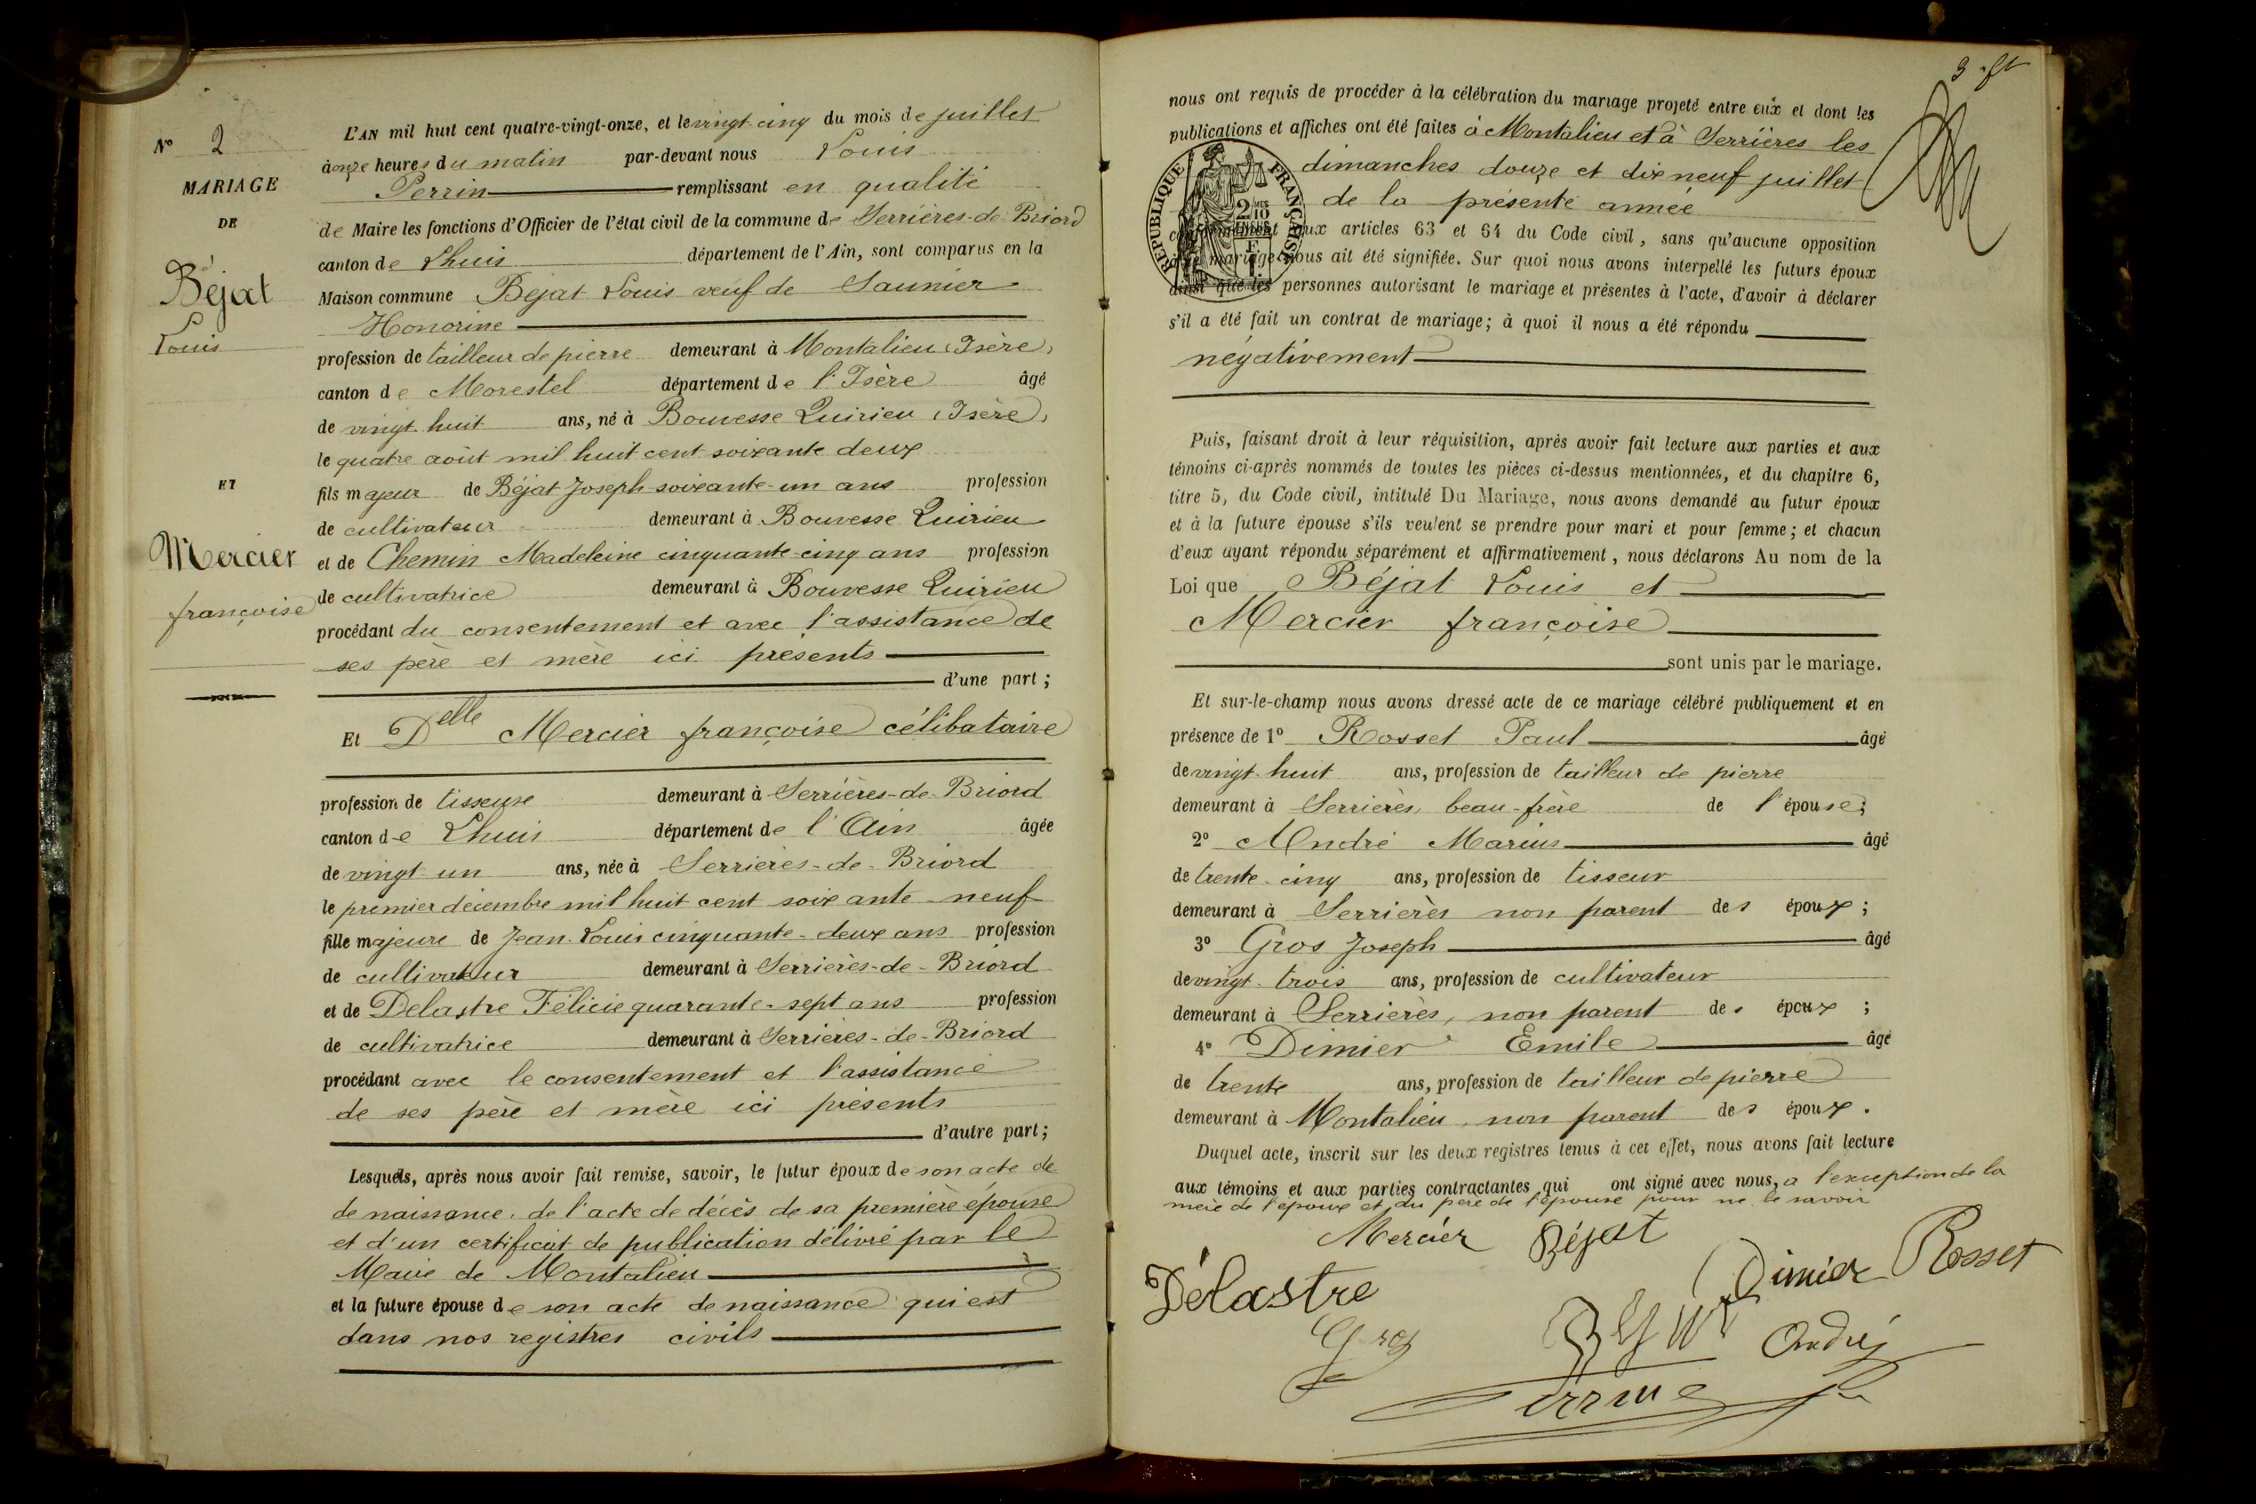 N° 2
MARIAGE
DE
Béjat
Louis
ET
Mercier
françoise
L'AN mil huit cent quatre-vingt-onze, et le vingt-cinq du mois de juillet
à onze heures du matin par-devant nous Louis
Perrin remplissant en qualité
de Maire les fonctions d'Officier de l'état civil de la commune de Serrières-de-Briord
canton de Lhuis département de l'Ain, sont comparus en la
Maison commune Béjat Louis veuf de Saunier
Honorine
profession de tailleur de pierre demeurant à Montalieu (Isère)
canton de Morestel département de l'Isère âgé
de vingt huit ans, né à Bouvesse Quirieu (Isère)
le quatre août mil huit cent soixante deux
fils majeur de Béjat Joseph soixante-un ans profession
de cultivateur demeurant à Bouvesse Quirieu
et de Chemin Madeleine cinquante-cinq ans profession
de cultivatrice demeurant à Bouvesse Quirieu
procédant du consentement et avec l'assistance de
ses père et mère ici présents
d'une part;
Et Delle Mercier françoise célibataire
profession de tisseuse demeurant à Serrières-de-Briord
canton de Lhuis département de l'Ain âgée
de vingt un ans, née à Serrières-de-Briord
le premier décembre mil huit cent soixante-neuf
fille majeure de Jean-Louis cinquante-deux ans profession
de cultivateur demeurant à Serrières-de-Briord
et de Delastre Félicie quarante-sept ans profession
de cultivatrice demeurant à Serrières-de-Briord
procédant avec le consentement et l'assistance
de ses père et mère ici présents
d'autre part;
Lesquels, après nous avoir fait remise, savoir, le futur époux de son acte de
de naissance, de l'acte de décès de sa première épouse
et d'un certificat de publication délivré par le
Maire de Montalieu
et la future épouse de son acte de naissance qui est
dans nos registres civils
nous ont requis de procéder à la célébration du mariage projeté entre eux et dont les
publications et affiches ont été faites à Montalieu et à Serrières les
dimanches douze et dix neuf juillet
de la présente année
RÉPUBLIQUE FRANÇAISE
conformément aux articles 63 et 64 du Code civil, sans qu'aucune opposition
mariage nous ait été signifiée. Sur quoi nous avons interpellé les futurs époux
ainsi que les personnes autorisant le mariage et présentes à l'acte, d'avoir à déclarer
s'il a été fait un contrat de mariage; à quoi il nous a été répondu
négativement
Puis, faisant droit à leur réquisition, après avoir fait lecture aux parties et aux
témoins ci-après nommés de toutes les pièces ci-dessus mentionnées, et du chapitre 6,
titre 5, du Code civil, intitulé Du Mariage, nous avons demandé au futur époux
et à la future épouse s'ils veulent se prendre pour mari et pour femme; et chacun
d'eux ayant répondu séparément et affirmativement, nous déclarons Au nom de la
Loi que Béjat Louis et
Mercier françoise
sont unis par le mariage.
Et sur-le-champ nous avons dressé acte de ce mariage célébré publiquement et en
présence de 1° Rosset Paul âgé
de vingt-huit ans, profession de tailleur de pierre
demeurant à Serrières, beau-frère de l'épouse;
2° André Marius âgé
de trente-cinq ans, profession de tisseur
demeurant à Serrières non parent des époux;
3° Gros Joseph âgé
de vingt-trois ans, profession de cultivateur
demeurant à Serrières, non parent des époux;
4° Dimier Emile âgé
de trente ans, profession de tailleur de pierre
demeurant à Montalieu, non parent des époux.
Duquel acte, inscrit sur les deux registres tenus à cet effet, nous avons fait lecture
aux témoins et aux parties contractantes qui ont signé avec nous, a l'exception de la
mère de l'époux et du père de l'épouse pour ne le savoir
Mercier Béjat
Délastre Dimier Rosset
Gros André
Perrin